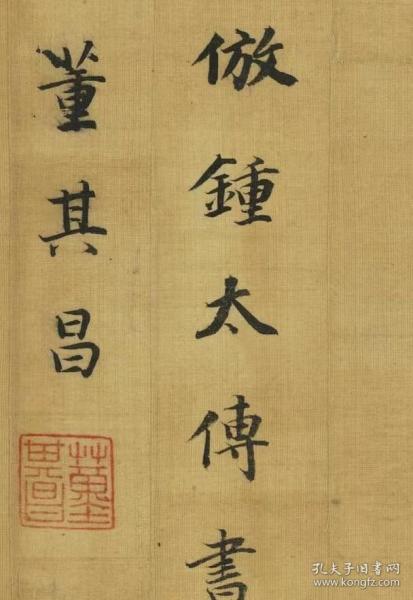 倣鍾太傅書
董其昌
董其昌
孔夫子旧书网